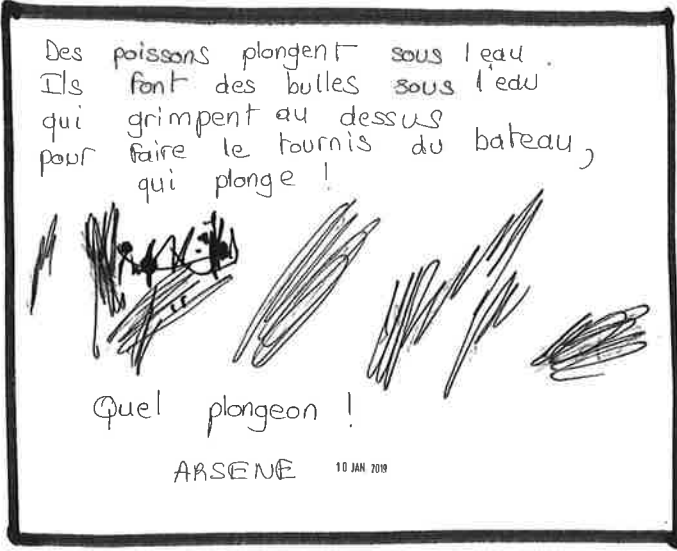 Des poissons plongent sous l eau.
Ils font des bulles sous l'eau
qui grimpent au dessus
pour faire le tournis du bateau,
qui plonge !
Quel plongeon !
ARSENE 10 JAN 2019